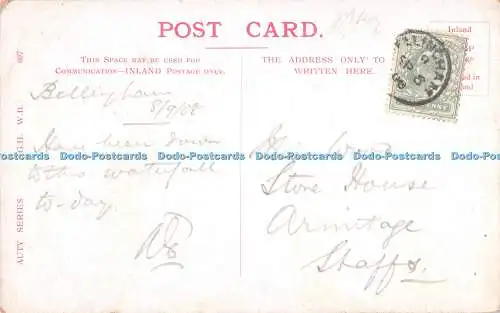 POST CARD.
THIS SPACE MAY BE USED FOR
COMMUNICATION—INLAND POSTAGE ONLY.
THE ADDRESS ONLY TO BE
WRITTEN HERE.
Inland
BELLINGHAM
Bellingham
8/9/08
Have been down
to this waterfall
to-day.
Store House
Armitage
Staffs.
AUTY SERIES G.H. W.B. 667
Dodo-Postcards Dodo-Postcards Dodo-Postcards Dodo-Postcards Dodo-Postcards